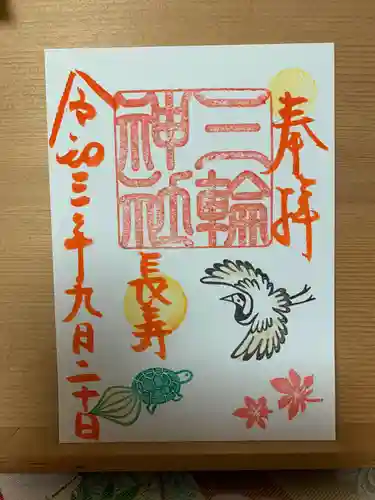 奉拝
三輪
神社
長寿
令和三年九月二十日